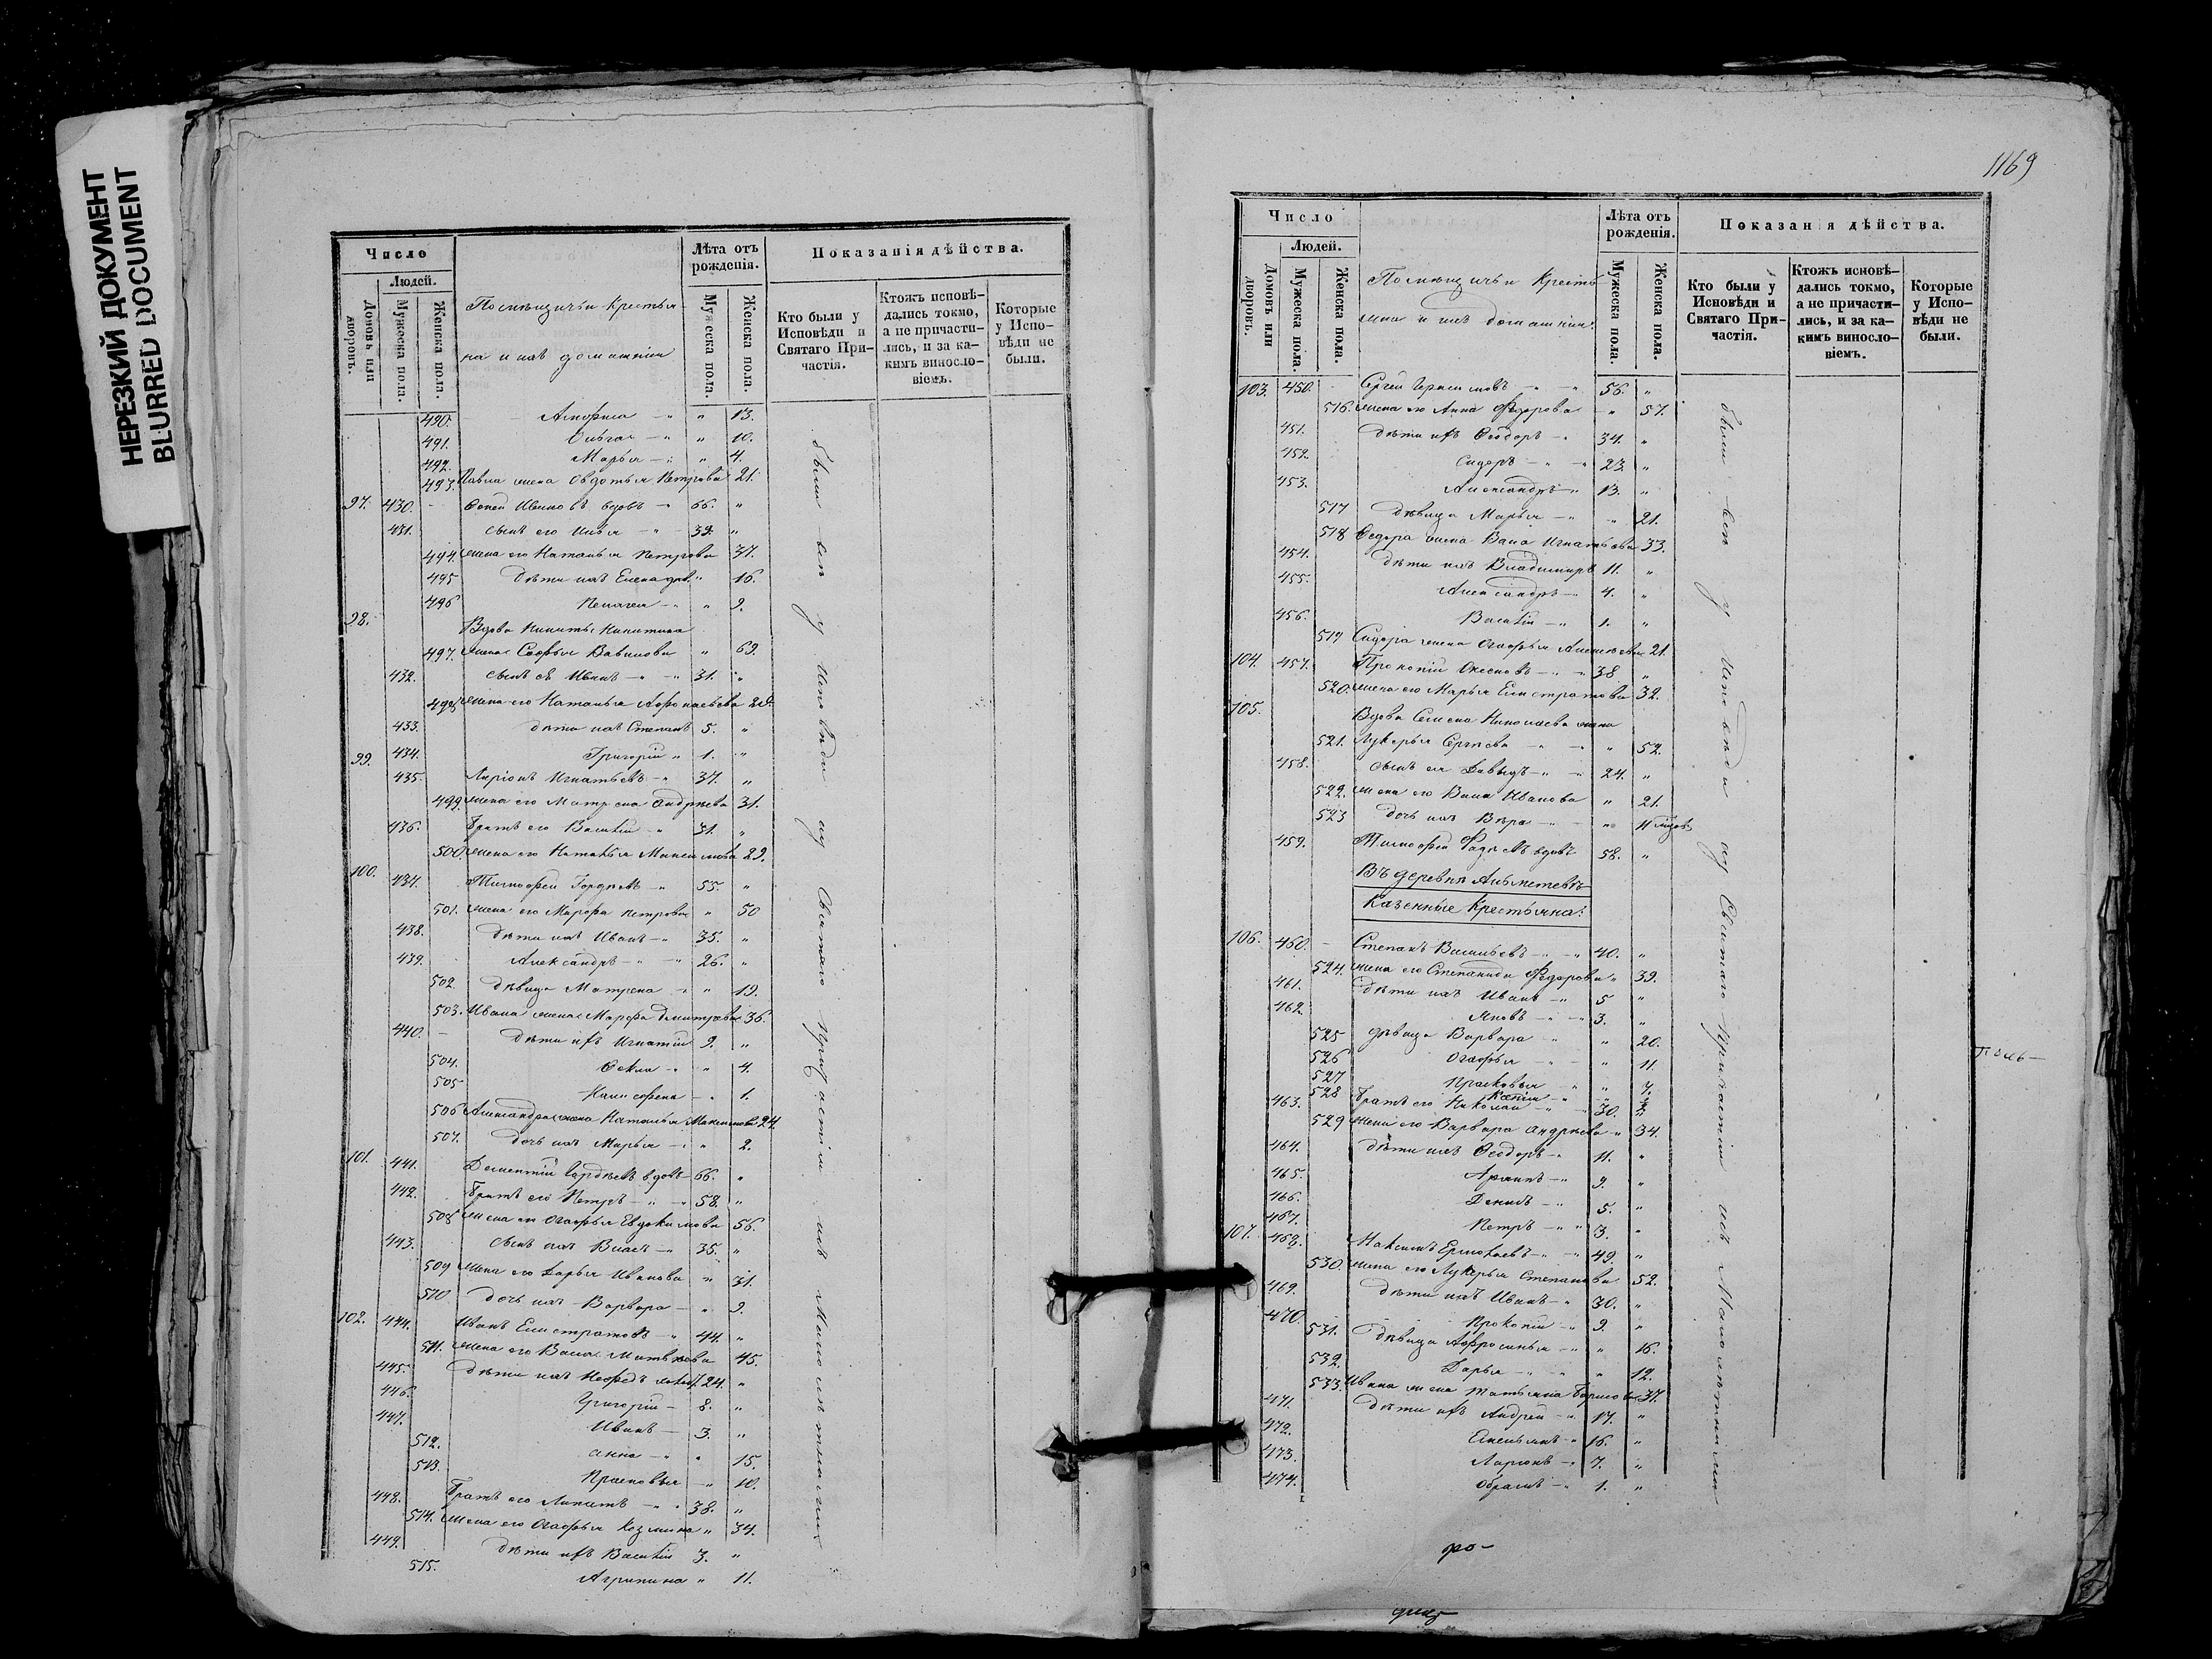 НЕРЕЗКИЙ ДОКУМЕНТ
BLURRED DOCUMENT
Число
Людей.
Домовъ или дворовъ.
Мужеска пола.
Женска пола.
Помѣщичьи крестья
на и ихъ домашніи
Лѣта отъ рожденія.
Мужеска пола.
Женска пола.
Показанія дѣйства.
Кто были у Исповѣди и Святаго При-частія.
Ктожъ исповѣ-дались токмо, а не причасти-лись, и за ка-кимъ винословіемъ.
Которые у Испо-вѣди не были.
490. Анфиса " 13.
491. Ольга " 10.
492. Марья " 4.
493. Павла жена Овдотья Петрова 21.
97. 430. Ивановъ вдовъ 66. "
431. сынъ его Илья 39. "
494. жена его Наталья Петрова 37.
495 дѣти ихъ Елена " 16.
496 Пелагея " 9.
98. Вдова Никиты Никитина
497. жена Софья Вавилова " 69.
432. сынъ ея Иванъ 31. "
498 жена его Наталья Афонасьева 28.
433. дѣти ихъ Степанъ 5. "
434. Григорій 1. "
99. 435. Ларіонъ Игнатьевъ 37. "
499. жена его Матрена Андрѣева 31.
436. братъ его Василій 31. "
500. жена его Наталья Максимова 29.
100. 437. Тимофей Гордѣевъ 55. "
501. жена его Марфа Петрова " 50
438. дѣти ихъ Иванъ 35. "
439. Александръ 26. "
502. дѣвица Матрена " 19.
503. Ивана жена Марфа Дмитрова 36.
440. дѣти ихъ Игнатій 9. "
504. Фекла " 4.
505 1.
506 Александра жена Наталья Максимова 24.
507. дочь ихъ Марья " 2.
101. 441. Дементій Гордѣевъ вдовъ 66. "
442. братъ его Петръ 58. "
508 жена его Огафья Евдокимова 56.
443. сынъ ихъ Власъ 35. "
509 жена его Дарья Иванова " 31.
510 дочь ихъ Варвара " 9.
102. 444. Иванъ Елистратовъ 44. "
511. жена его Васа Матвѣева 45.
445. дѣти ихъ 24. "
446. Григорій 8. "
447. Иванъ 3. "
512. Анна " 15.
513. Прасковья 10.
448. братъ его Липатъ 38. "
514. жена его Огафья Козмина " 34.
449. дѣти ихъ Василій 3. "
515. Агрипина " 11.
были всѣ у Исповѣди и у Святаго Причастія съ Малолѣтными
1169
Число
Людей.
Домовъ или дворовъ.
Мужеска пола.
Женска пола.
Помѣщичьи крестья
на и ихъ домашніи
Лѣта отъ рожденія.
Мужеска пола.
Женска пола.
Показанія дѣйства.
Кто были у Исповѣди и Святаго При-частія.
Ктожъ исповѣ-дались токмо, а не причасти-лись, и за ка-кимъ винословіемъ.
Которые у Испо-вѣди не были.
103. 450. Сергей Герасимовъ 56. "
516. жена его Анна Федорова " 57.
451. дѣти ихъ Феодоръ 34. "
452. Сидоръ 23. "
453. Александръ 13. "
517 дѣвица Марья " 21.
518 Федора жена Васа Игнатьева 33.
454. дѣти ихъ Владимиръ 11. "
455. Александръ 4. "
456. Василій 1. "
519 Сидора жена Огафья Алексѣева 21.
104. 457. Прокопій 38 "
520. жена его Марья Елистратова 32.
105. Вдова Семена Николаева жена
521. Лукерья Сергѣева " 52.
458. сынъ ея Давыдъ 24. "
522. жена его Васа Иванова " 21.
523 дочь ихъ Вѣра " 11 мцов
459. Тимофей Фадѣевъ вдовъ 58. "
Въ деревнѣ Альметевѣ
Казенные крестьяна:
106. 460. Степанъ Васильевъ 40. "
524. жена его Степанида Федорова " 39.
461. дѣти ихъ Иванъ 5 "
462. Яковъ 3. "
525 дѣвица Варвара " 20.
526 Огафья " 11.
527 Прасковья " 7.
528
463. братъ его Николай 30. "
529 жена его Варвара Андрѣева " 34.
464. дѣти ихъ Феодоръ 11. "
465. Архипъ 9. "
466. Денисъ 5. "
467. Петръ 3. "
107. 468. Максимъ Ермолаевъ 49. "
530. жена его Лукерья Степанова 52.
469. дѣти ихъ Иванъ 30. "
470. Прокопій 9. "
531. дѣвица Афросинья " 16.
532. Дарья " 12.
533. Ивана жена Татьяна Борисова 37.
471. дѣти ихъ Андрей 17. "
472. Емельянъ 16. "
473. Ларіонъ 7. "
474. Обрамъ 1. "
были всѣ у Исповѣди и у Святаго Причастія съ Малолѣтными